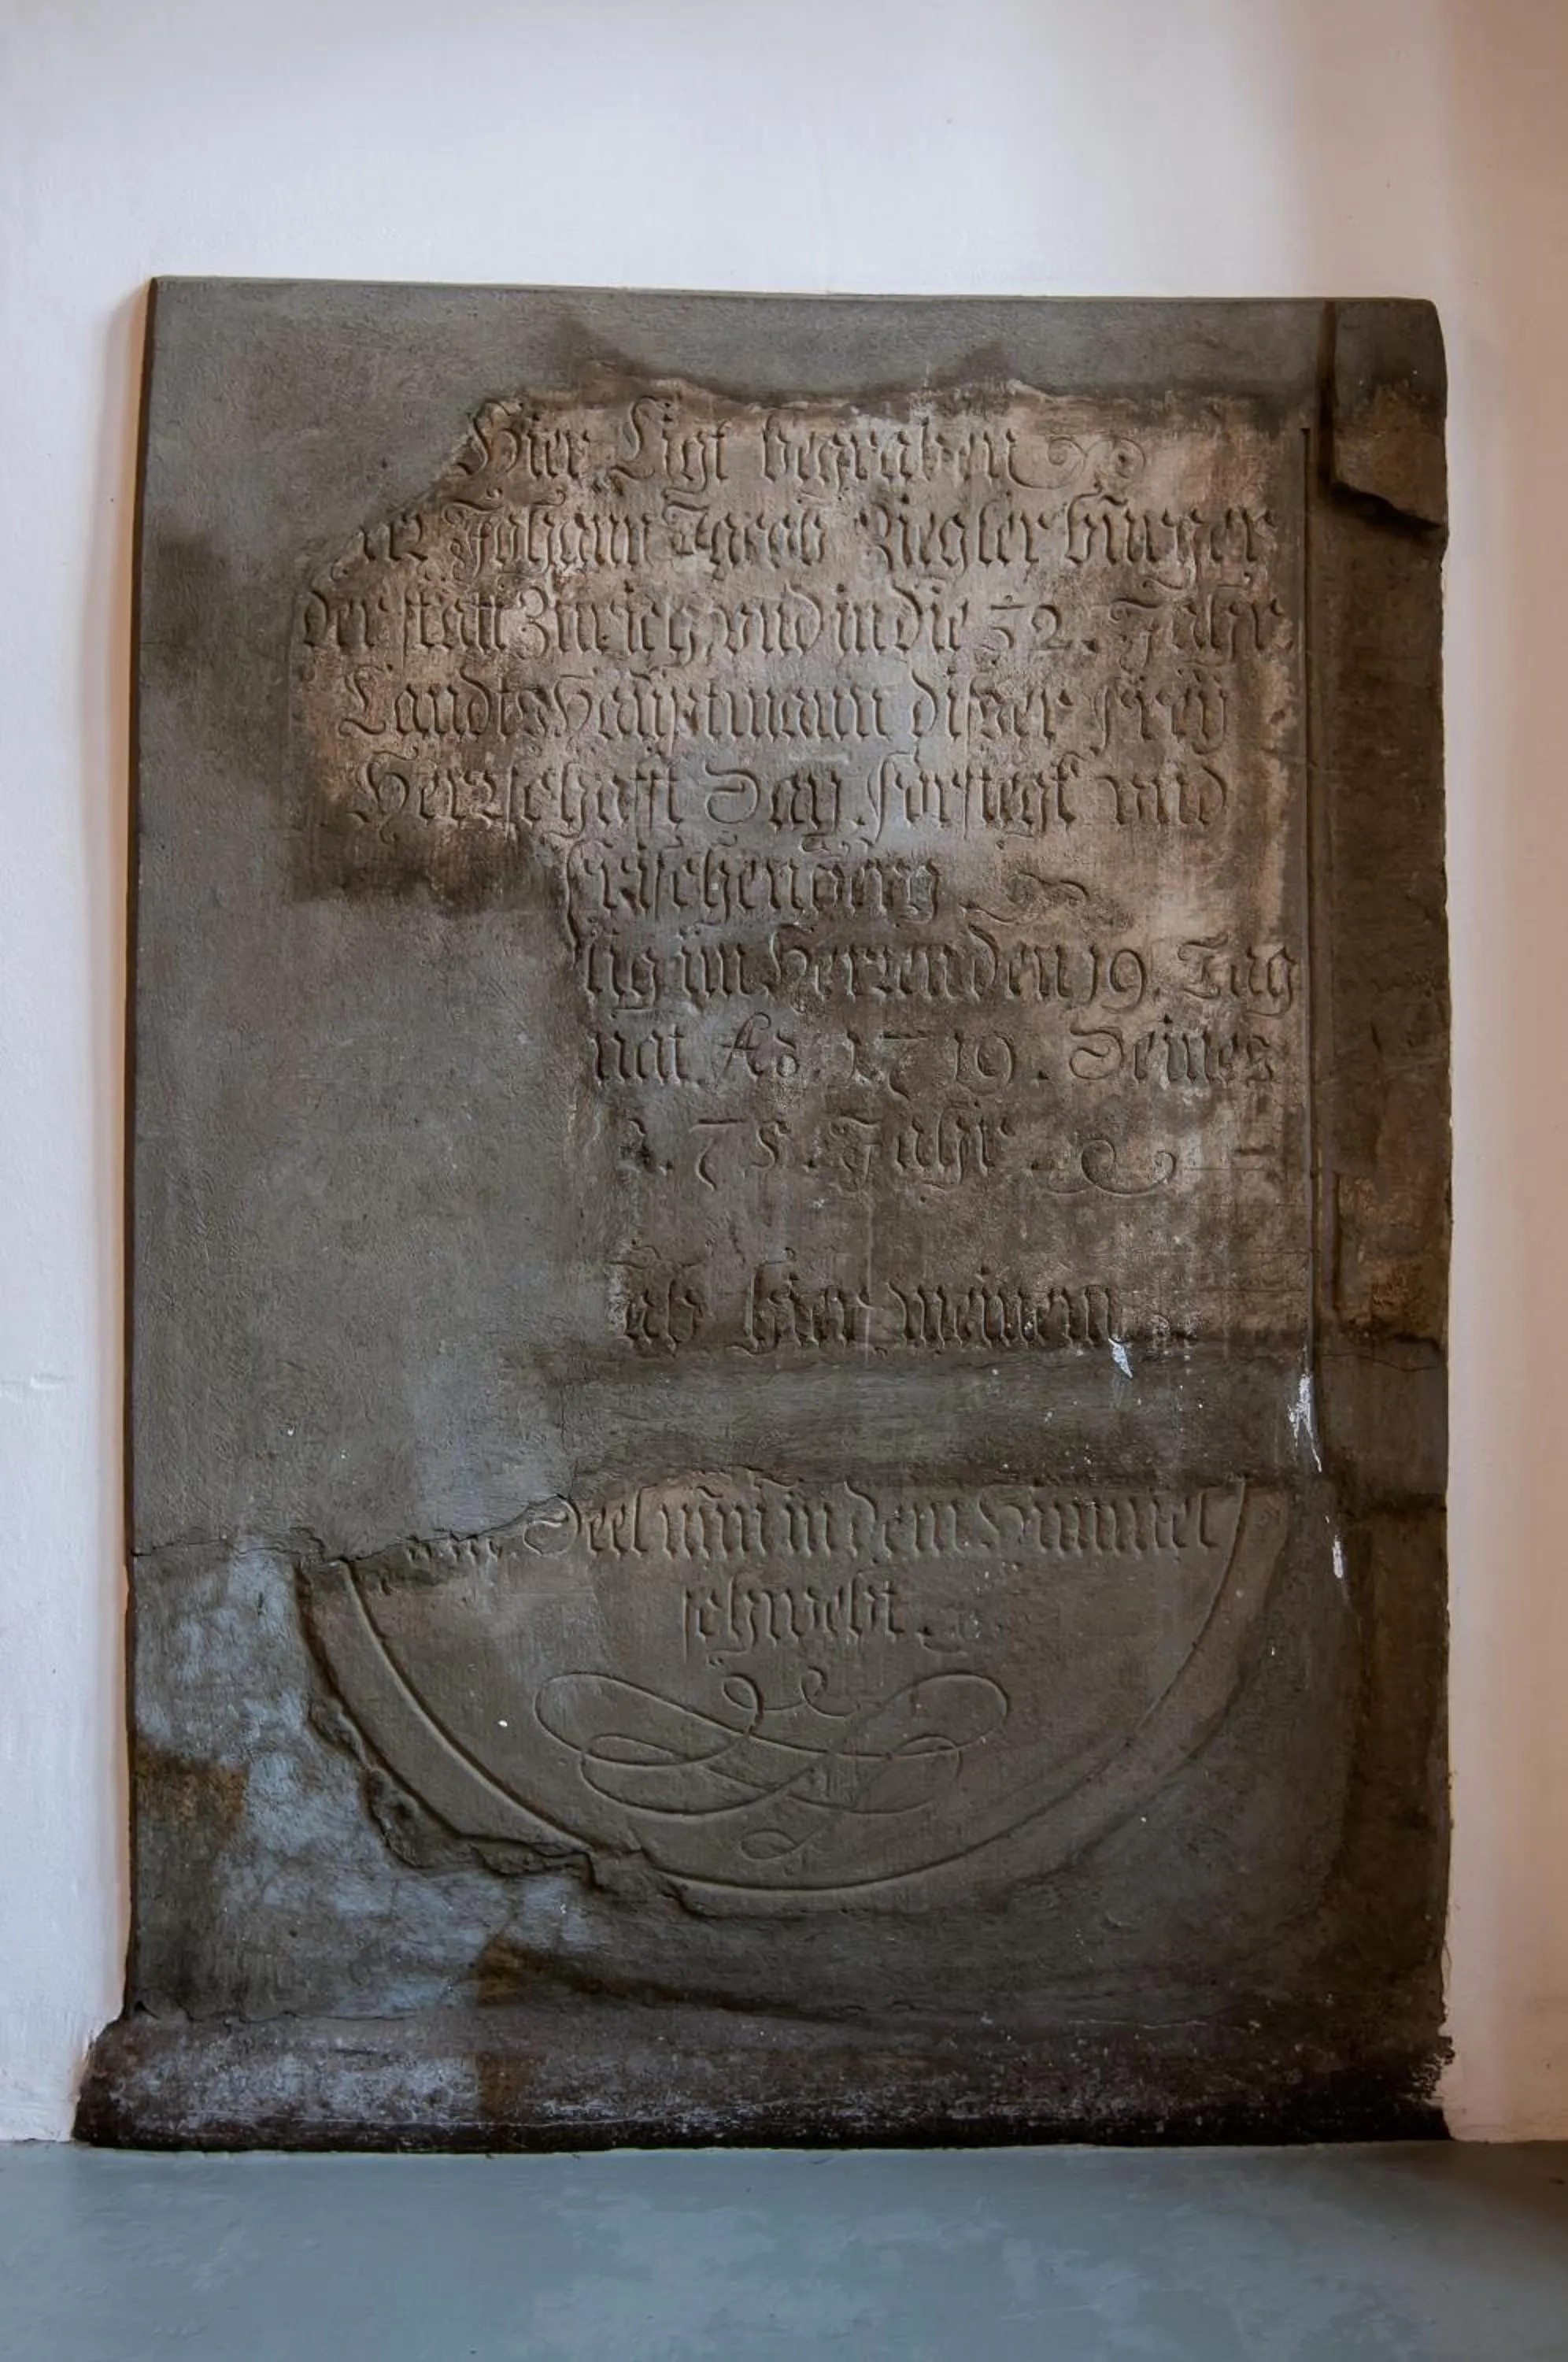 Hier Ligt begraben
Johann Jacob Ziegler bürger
der statt Zürich, und in die 32. Jahr
Landts Haüptmann diser frey
Herrschafft Sax, forstegk und
frischenberg
lig im Herren den 19. Tag
nat. Aō. 1719. Seines
75. Jahr
ab hier meinem
Seel nun in dem Himmel
schwebt.